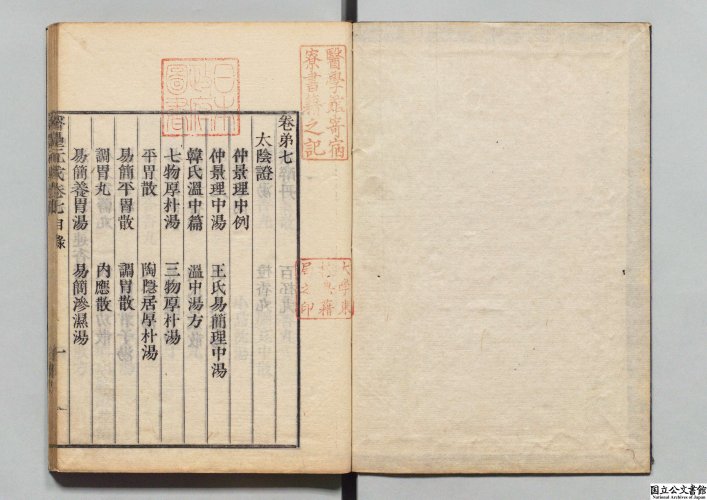 醫學館寄宿
寮書籍之記
日本
政府
圖書
大學東
校典籍
局之印
卷弟七
太陰證
仲景理中例
仲景理中湯　王氏易簡理中湯
韓氏溫中篇　溫中湯方
七物厚朴湯　三物厚朴湯
平胃散　陶隱居厚朴湯
易簡平胃散　調胃散
調胃丸　內應散
易簡養胃湯　易簡滲濕湯
卷七目錄
一
国立公文書館
National Archives of Japan